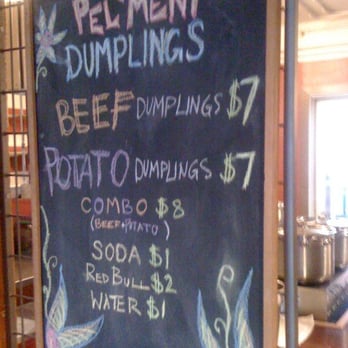 PEL'MENI
DUMPLINGS
BEEF DUMPLINGS $7
POTATO DUMPLINGS $7
COMBO $8
(BEEF+POTATO)
SODA $1
RED BULL $2
WATER $1